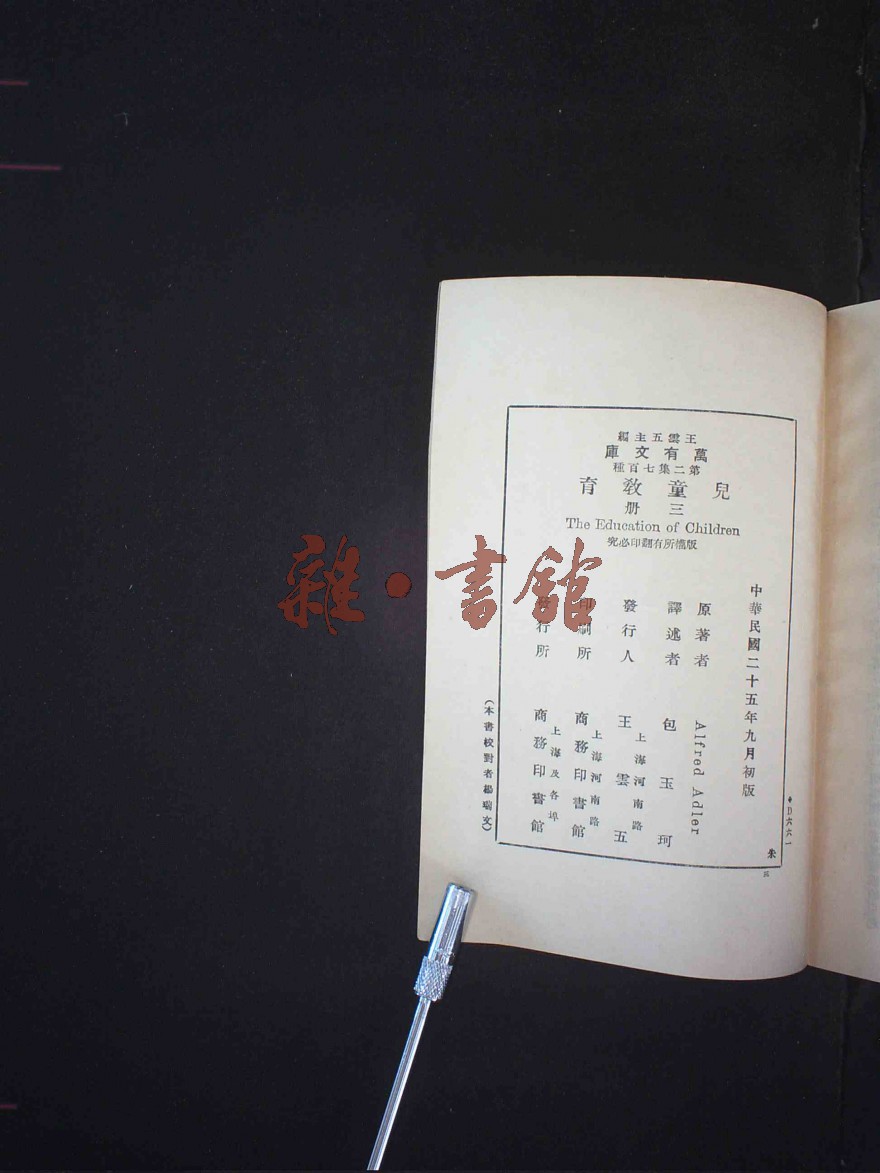 王雲五主編
萬有文庫
第二集七百種
兒童教育
三册
The Education of Children
版權所有翻印必究
中華民國二十五年九月初版
原著者 Alfred Adler
譯述者 包玉珂
發行人 王雲五
上海河南路
印刷所 商務印書館
上海河南路
發行所 商務印書館
上海及各埠
(本書校對者楊瑞文)
D六六一
朱
雜·書館